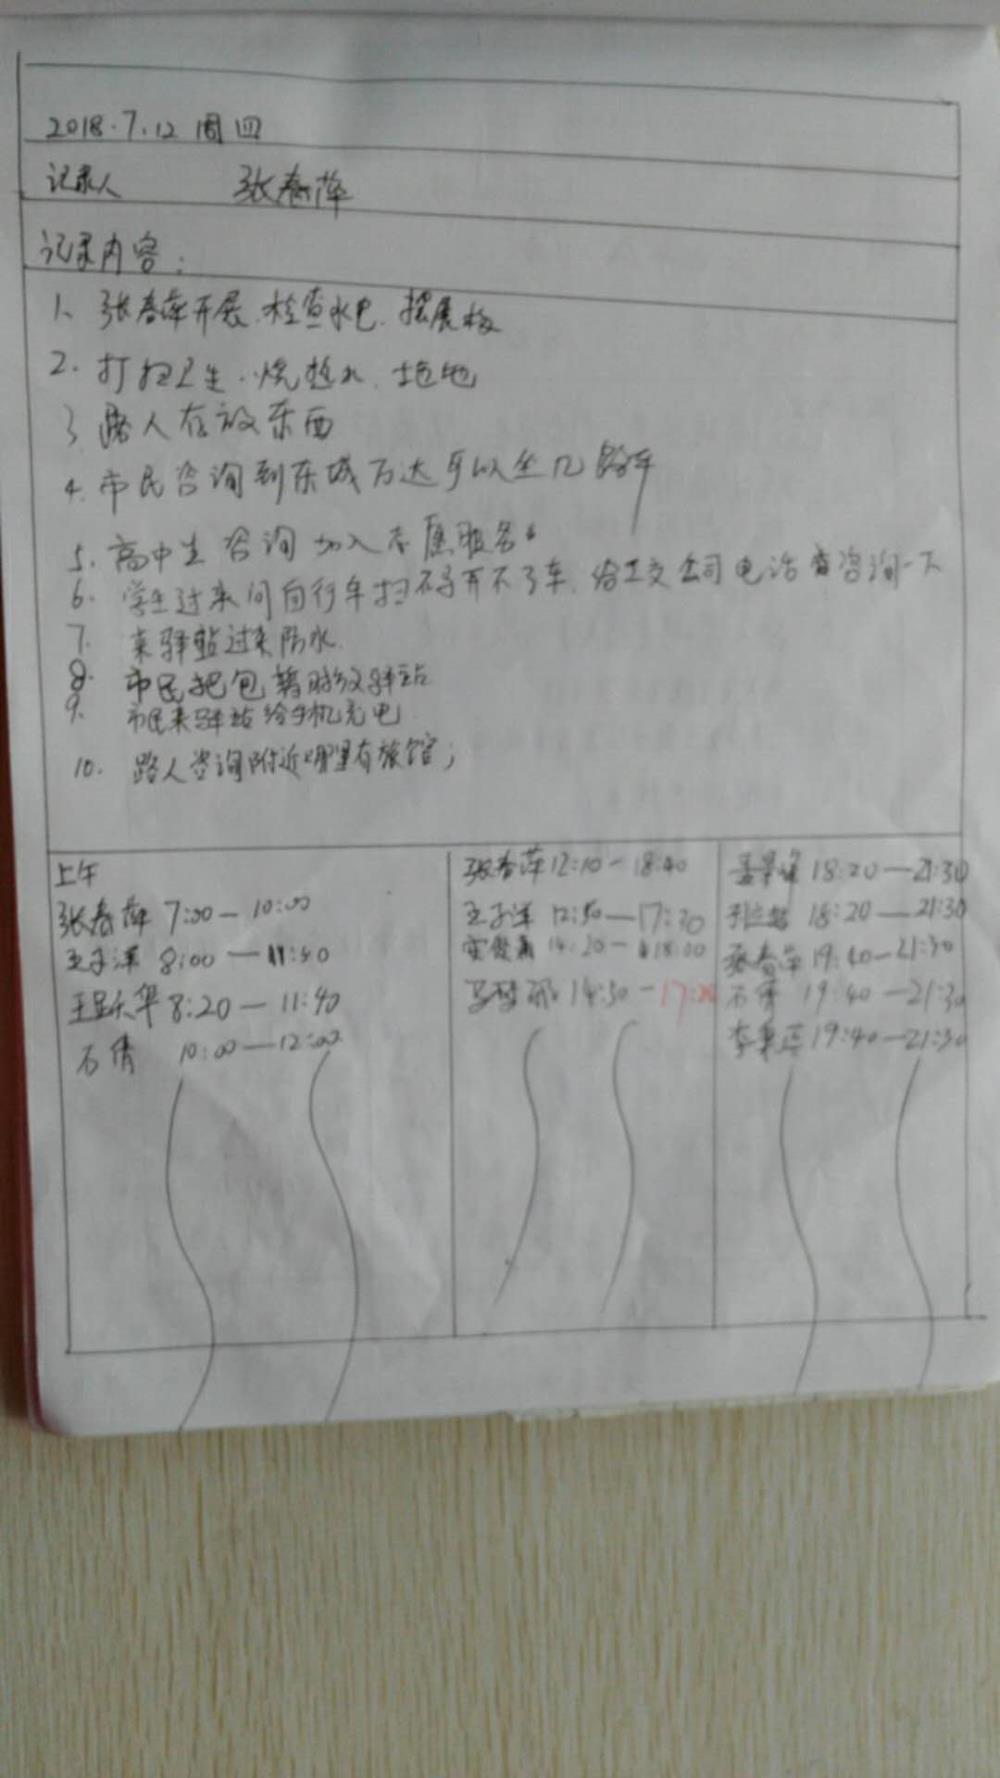 2018.7.12 周四
记录人 张春萍
记录内容：
1、张春萍开展.检查水电.摆展板
2.打扫卫生.烧热水.拖地
3 路人存放东西
4.市民咨询到东城万达可以坐几路车
5.高中生咨询加入志愿服务。
6.学生过来问自行车扫不了码开不了车.给公交公司电话咨询一下
7.来驿站过来防水.
8.市民把包暂时放驿站
9.市民来驿站给手机充电
10.路人咨询附近哪里有旅馆；
上午
张春萍 7:00—10:00
王子洋 8:00—11:50
王 华 8:20—11:40
石倩 10:00—12:00
张春萍 12:10—18:40
王子洋 12:30—17:30
14:20—18:00
14:30—17:
18:20—21:30
18:20—21:30
张春萍 19:40—21:30
石倩 19:40—21:30
李 19:40—21:30